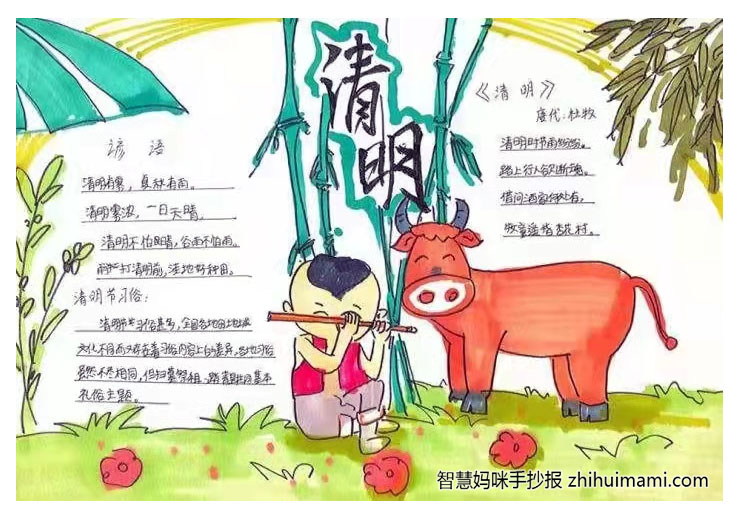 清明
谚语
清明有雾，夏秋有雨。
清明雾浓，一日天晴。
清明不怕晴，谷雨不怕雨。
雨打清明前，洼地好种田。
清明节习俗：
清明节习俗甚多，全国各地因地域
文化不同而又存在着习俗内容上的差异，各地习俗
虽然不尽相同，但扫墓祭祖、踏青是共同基本
礼俗主题。
《清明》
唐代：杜牧
清明时节雨纷纷。
路上行人欲断魂。
借问酒家何处有，
牧童遥指杏花村。
智慧妈咪手抄报 zhihuimami.com